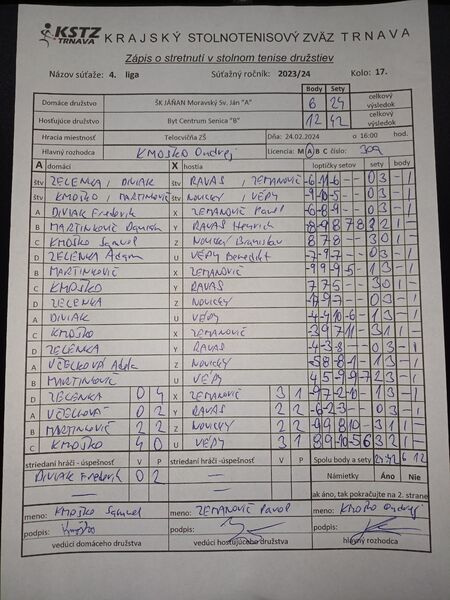 KSTZ TRNAVA KRAJSKÝ STOLNOTENISOVÝ ZVÄZ TRNAVA
Zápis o stretnutí v stolnom tenise družstiev
Názov súťaže: 4. liga Súťažný ročník: 2023/24 Kolo: 17.
Body Sety
Domáce družstvo ŠK JÁŇAN Moravský Sv. Ján "A" 6 24 celkový výsledok
Hosťujúce družstvo Byt Centrum Senica "B" 12 42 celkový výsledok
Hracia miestnosť Telocvičňa ZŠ Dňa: 24.02.2024 o 16:00 hod.
Hlavný rozhodca KMOŠKO Ondrej Licencia: M A B C číslo: 309
A domáci X hostia loptičky setov sety body
štv ZELENKA, DIVIAK štv RAVAS, ZEMANOVIČ -6 -11 -6 - - 0 3 - 1
štv KMOŠKO, MARTINKOVIČ štv NOVICKÝ, VÉPY 0 3 - 1
A DIVIAK Frederik X ZEMANOVIČ Pavol -6 -8 -9 - - 0 3 - 1
B MARTINKOVIČ Y RAVAS Henrich
C KMOŠKO Samuel Z NOVICKÝ Branislav 8 7 8 - - 3 0 1 -
D ZELENKA Adam U VÉPY Benedikt -7 -9 -7 - - 0 3 - 1
B MARTINKOVIČ X ZEMANOVIČ 1 3 - 1
C KMOŠKO Y RAVAS 7 7 5 - - 3 0 1 -
D ZELENKA Z NOVICKÝ 0 3 - 1
A DIVIAK U VÉPY 1 3 - 1
C KMOŠKO X ZEMANOVIČ 3 1 1 -
D ZELENKA Y RAVAS -4 -3 -8 - - 0 3 - 1
A VČELKOVÁ Adela Z NOVICKÝ 1 3 - 1
B MARTINKOVIČ U VÉPY 2 3 - 1
D ZELENKA 0 4 X ZEMANOVIČ 3 1 1 3 - 1
A VČELKOVÁ 0 2 Y RAVAS 2 2 0 3 - 1
B MARTINKOVIČ 2 2 Z NOVICKÝ 2 2 3 1 1 -
C KMOŠKO 4 0 U VÉPY 3 1 3 2 1 -
striedaní hráči - úspešnosť V P striedaní hráči - úspešnosť V P Spolu body a sety 24:42 6 12
DIVIAK Frederik 0 2 Námietky Áno Nie
ak áno, tak pokračujte na 2. strane
meno: KMOŠKO Samuel meno: ZEMANOVIČ Pavol meno: KMOŠKO Ondrej
podpis: Kmoško podpis: podpis:
vedúci domáceho družstva vedúci hosťujúceho družstva hlavný rozhodca